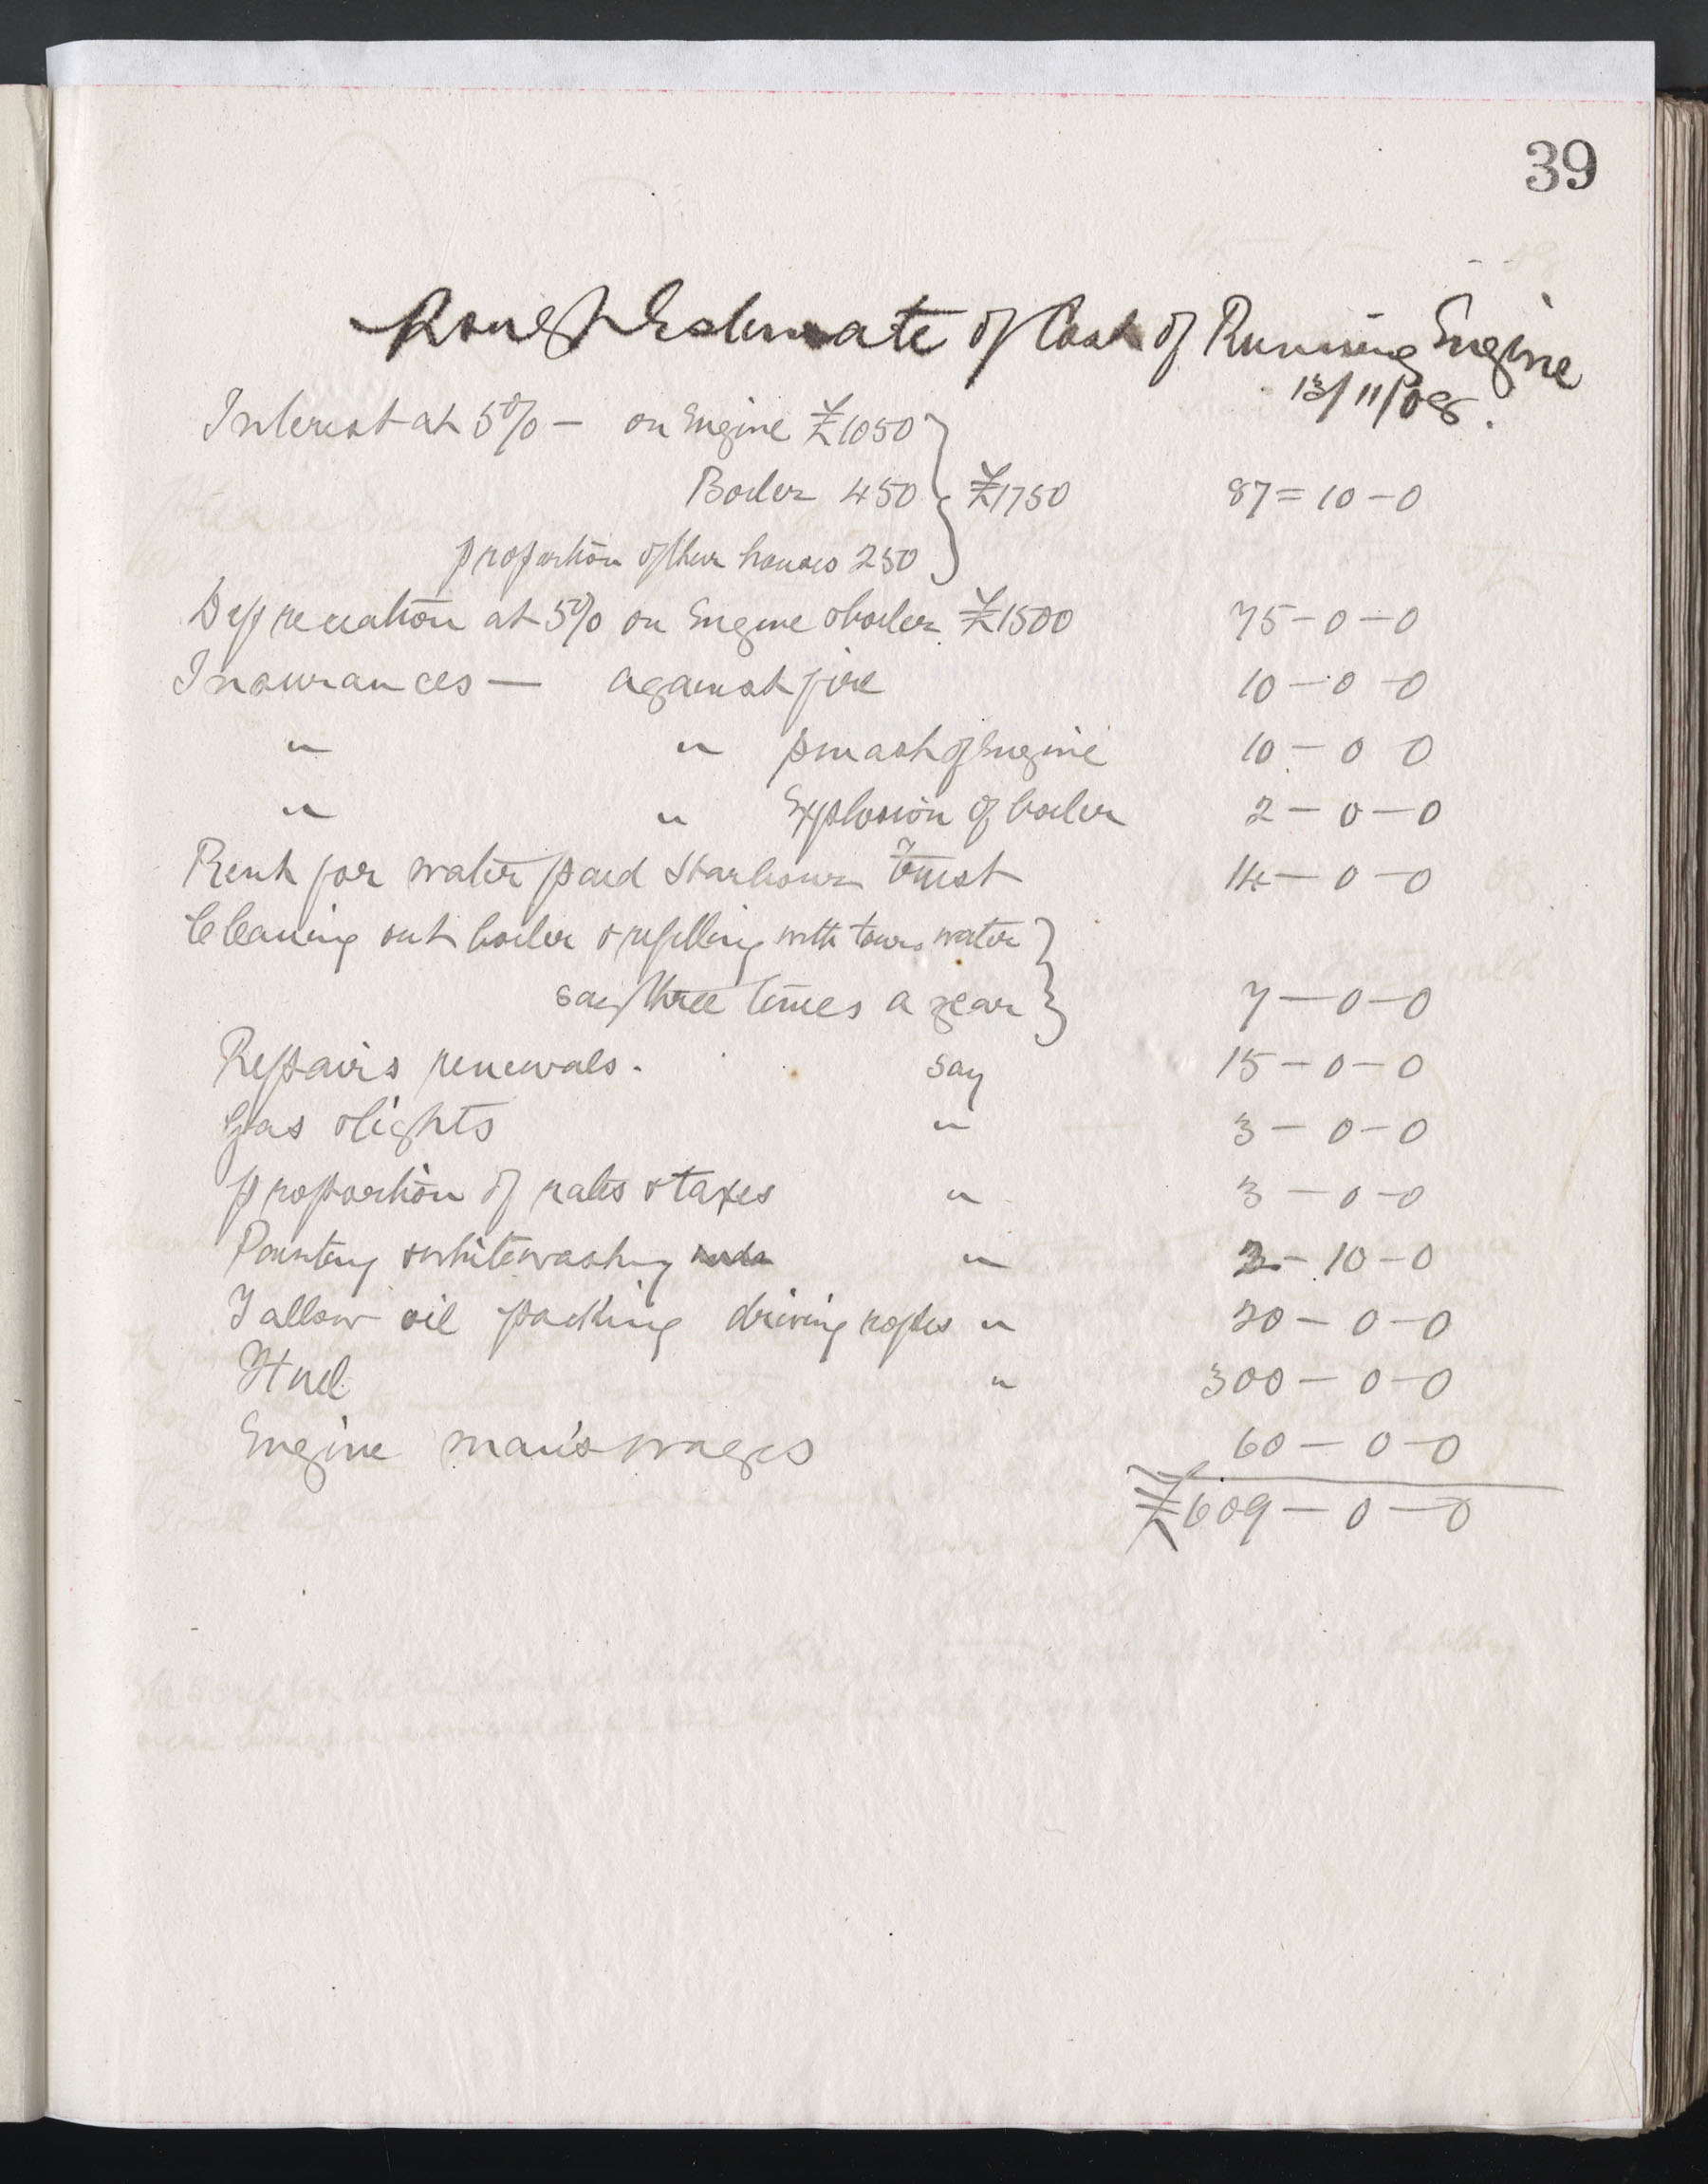 39
Rough Estimate of Cost of Running Engine
13/11/08.
Interest at 5% — on Engine £1050
Boiler 450 £1750 87=10-0
proportion other houses 250
Depreciation at 5% on Engine & boiler £1500 75-0-0
Insurances — against fire 10-0-0
" " smash of Engine 10-0 0
" " Explosion of boiler 2-0-0
Rent for water paid Harbour Trust 14-0-0
Cleaning out boiler & refilling with town water
say three times a year 7-0-0
Repairs renewals. say 15-0-0
Gas & lights " 3-0-0
proportion of rates & taxes " 3-0-0
Painting & whitewashing " 2-10-0
Tallow oil packing driving ropes " 20-0-0
Fuel " 300-0-0
Engine man's wages 60-0-0
£609-0-0